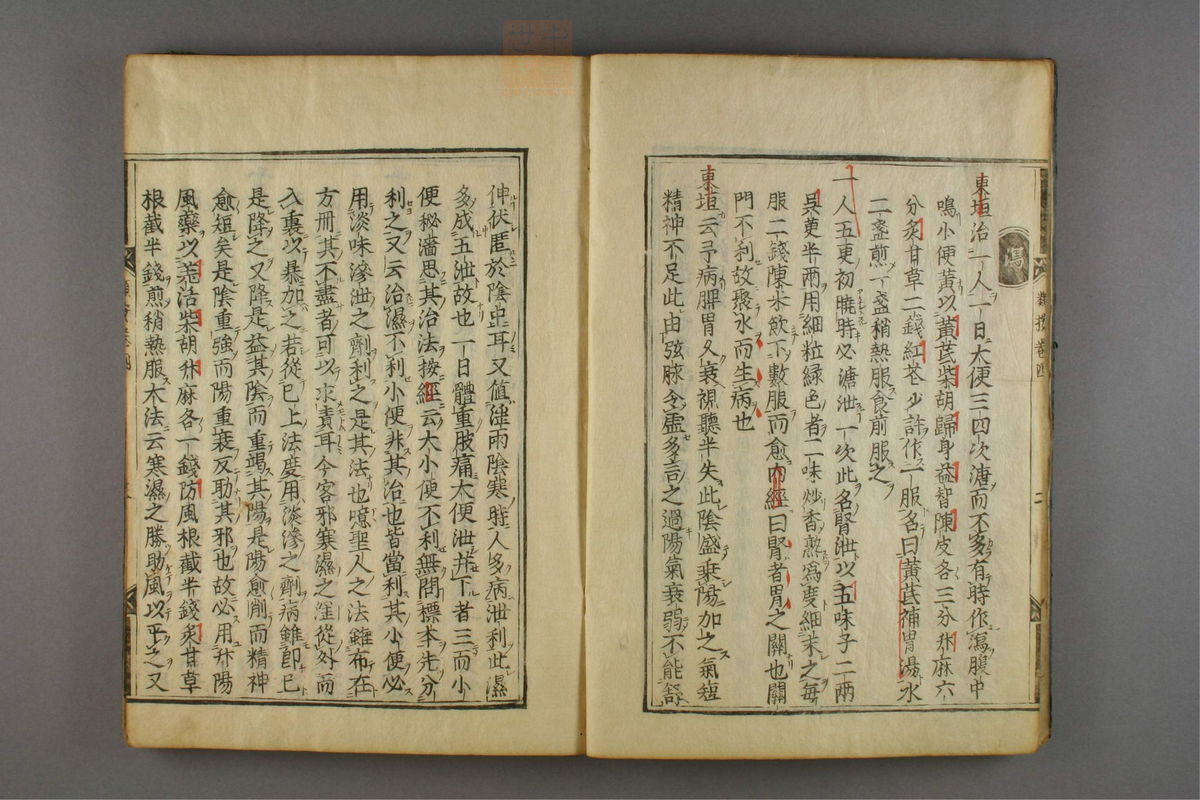 瀉
東垣治一人一日大便三四次溏而不多有時作瀉腹中
鳴小便黃以黃芪柴胡歸身益智陳皮各三分升麻六
分炙甘草二錢紅花少許作一服名曰黃芪補胃湯水
二盞煎一盞稍熱服食前服之
一人五更初曉時必溏泄一次此名腎泄以五味子二兩
吳茰半兩用細粒綠色者二味炒香熟爲度細末之每
服二錢陳米飲下數服而愈內經曰腎者胃之關也關
門不利故聚水而生病也
東垣云予病脾胃久衰視聽半失此陰盛乘陽加之氣短
精神不足此由弦脉令虛多言之過陽氣衰弱不能舒
伸伏匿於陰中耳又值淫雨陰寒時人多病泄利此濕
多成五泄故也一日體重肢痛大便泄幷下者三而小
便秘濇思其治法按經云大小便不利無問標本先分
利之又云治濕不利小便非其治也皆當利其小便必
用淡味滲泄之劑利之是其法也噫聖人之法雖布在
方冊其不盡者可以求責耳今客邪寒濕之淫從外而
入裏以暴加之若從已上法度用淡滲之劑病雖卽已
是降之又降是益其陰而重竭其陽是陽愈削而精神
愈短矣是陰重強而陽重衰反助其邪也故必用升陽
風藥以羌活柴胡升麻各一錢防風根截半錢炙甘草
根截半錢煎稍熱服大法云寒濕之勝助風以平之又